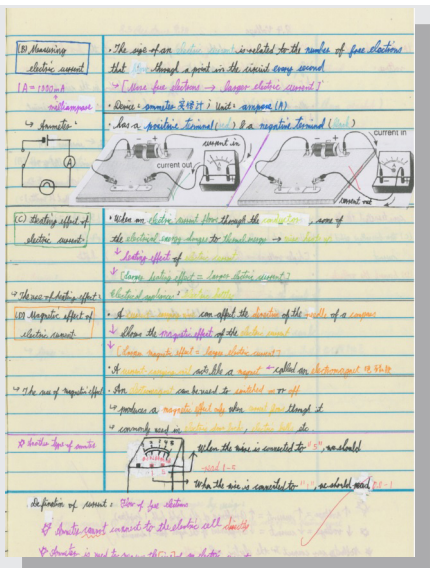 (B) Measuring electric current
• The size of an electric current is related to the number of free electrons
that flow through a point in the circuit every second
1A = 1000 mA
milliampere
↳ [More free electrons → larger electric current]
• Device: ammeter 安培計; Unit: ampere (A)
↳ Ammeter:
• has a positive terminal (red) & a negative terminal (black)
A
current out
current in
current in
current out
(C) Heating effect of electric current:
• When an electric current flows through the conductor, some of
the electrical energy changes to thermal energy →
↓ heating effect of electric current
↓ (larger heating effect = larger electric current)
→ The use of heating effect:
Electrical appliance: electric
(D) Magnetic effect of electric current
• A current-carrying coil can affect the direction of the needle of a compass
↓ Shows the magnetic effect of the electric current
↓ (larger magnetic effect = larger electric current)
• A current-carrying coil acts like a magnet → called an electromagnet
↳ The use of magnetic effect
• An electromagnet can be used to switched on or off
↳ produces a magnetic effect only when current flows through it
↳ commonly used in electric door lock, electric bells etc.
Another type of ammeter
When the wire is connected to "5", we should
read 1-5
When the wire is connected to "1", we should read 0.1-1
Definition of current: Flow of free electrons
Ammeter cannot connect to the electric cell directly
Ammeter is used to